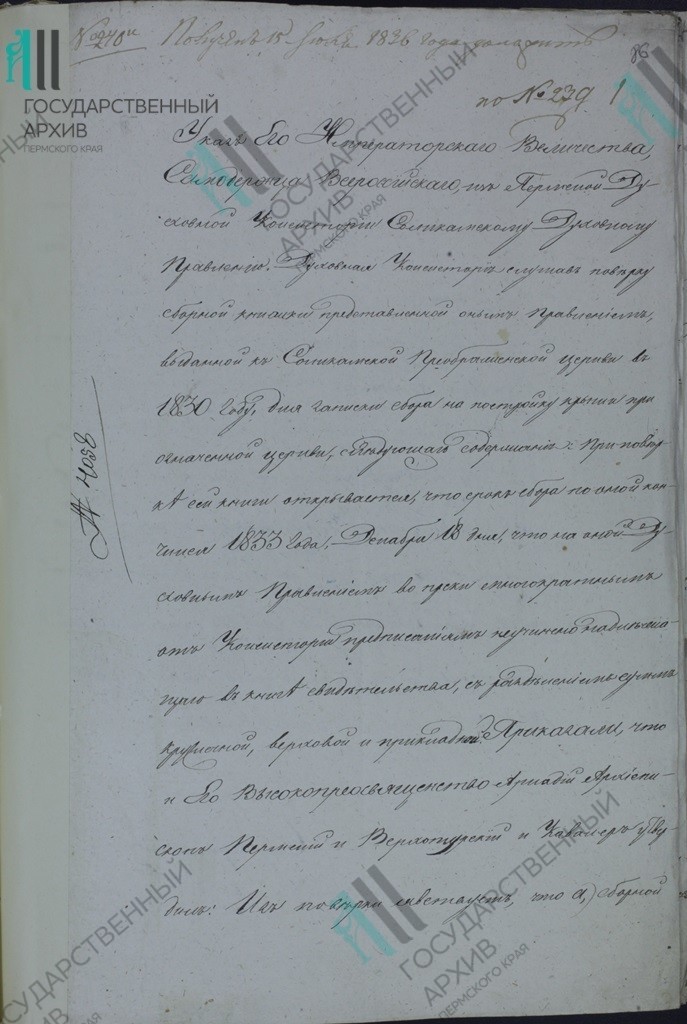 № 240 и Получен 15 Июля 1836 года доложить
86
по № 239 1
ГОСУДАРСТВЕННЫЙ
АРХИВ
ПЕРМСКОГО КРАЯ
Указъ Его Императорскаго Величества,
Самодержца Всероссійскаго, изъ Пермской Ду-
ховной Консисторіи Соликамскому Духовному
Правленію. Духовная Консисторія слушавъ поверку
сборной книжки представленной онымъ Правленіемъ,
выданной къ Соликамской Преображенской церкви въ
1830 году, для записки сбора на постройку крыши при
означенной церкви, слѣдующаго содержанія: При повѣр-
кѣ сей книги открывается, что срокъ сбора по оной кон-
чился 1833 года, Декабря 18 дня, что на оной Ду-
ховнымъ Правленіемъ во преки многократнымъ
отъ Консисторіи предписаніямъ неучинено надлежа-
щаго въ книгѣ свидѣтельства, съ раздѣленіемъ суммъ
кружечной, верховой и прикладной. Приказали, что
и Его Высокопреосвященство Аркадій Архіепи-
скопъ Пермскій и Верхотурскій и Кавалеръ утвер-
дилъ: Изъ поверки явствуетъ, что а,) сборной
№ 4058
ГОСУДАРСТВЕННЫЙ
АРХИВ
ПЕРМСКОГО КРАЯ